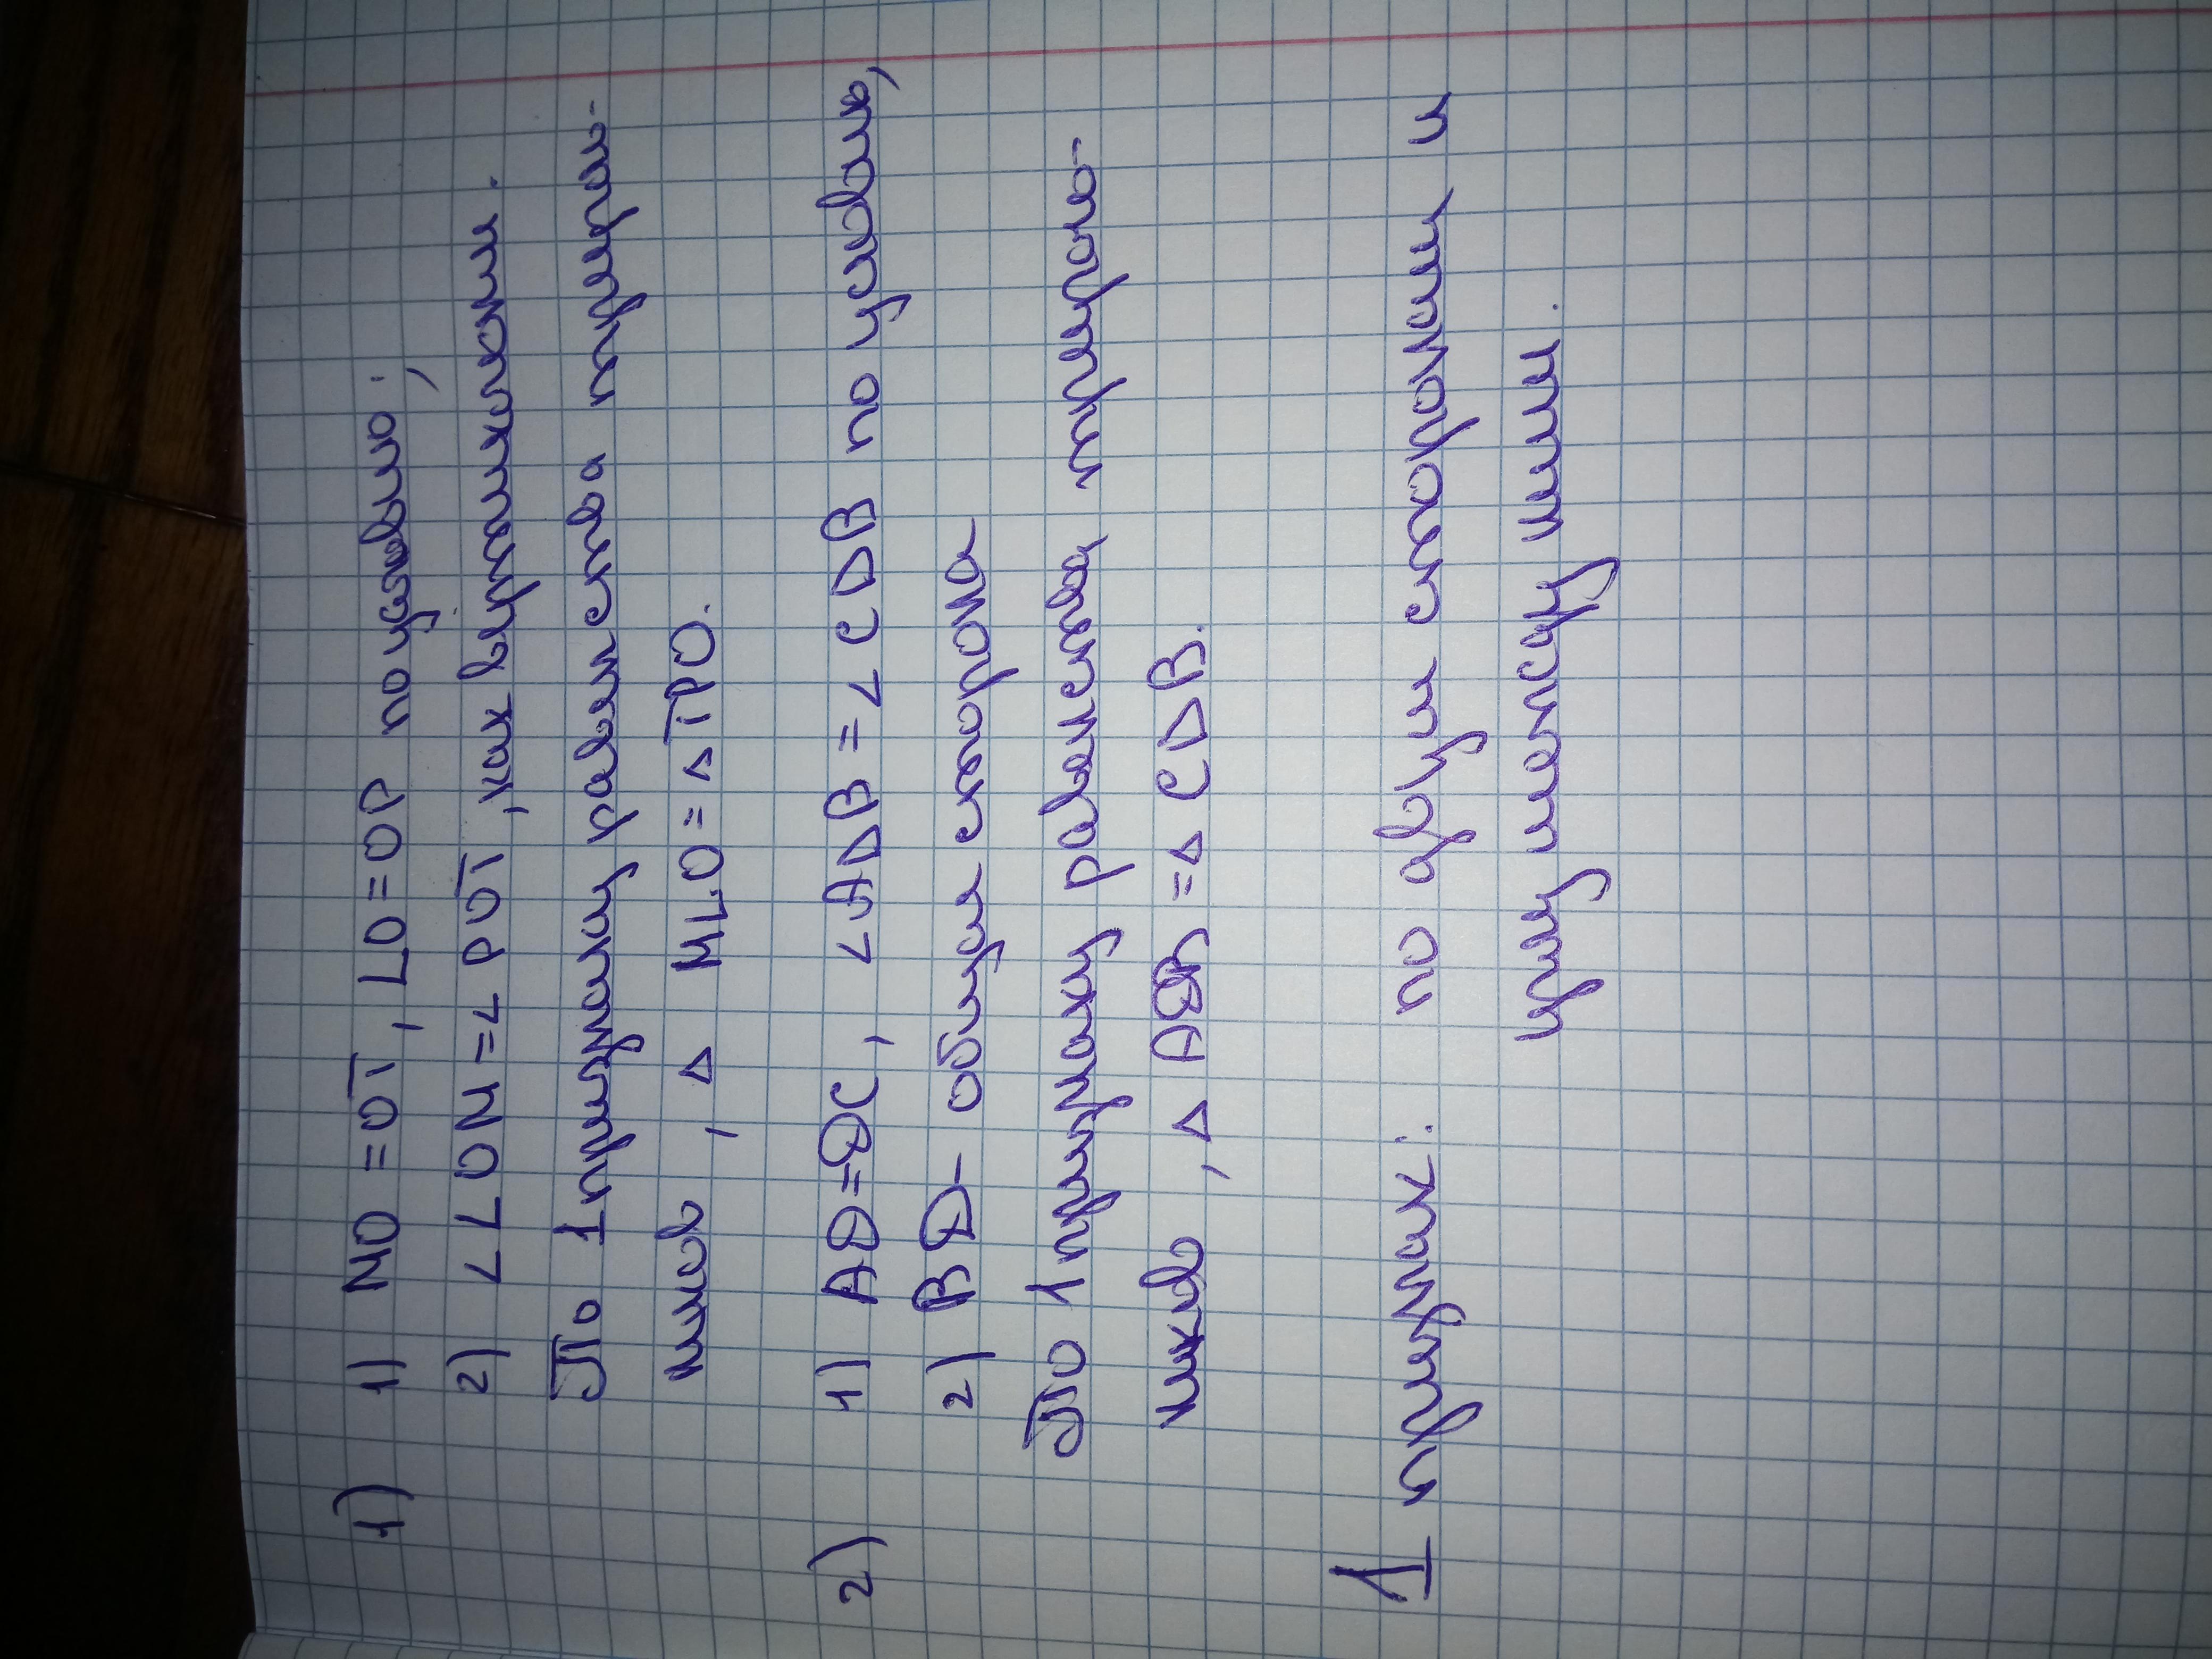 1) 1) МО = ОТ, LO = OP по условию;
2) ∠LOM = ∠POT, как вертикальн.
По 1 признаку равенства треуголь-
ников, △ MLO = △ TPO.
2) 1) AD = DC, ∠ADB = ∠CDB по условию,
2) BD - общая сторона
По 1 признаку равенства треуголь-
ников, △ ADB = △ CDB.
1 признак: по двум сторонам и
углу между ними.